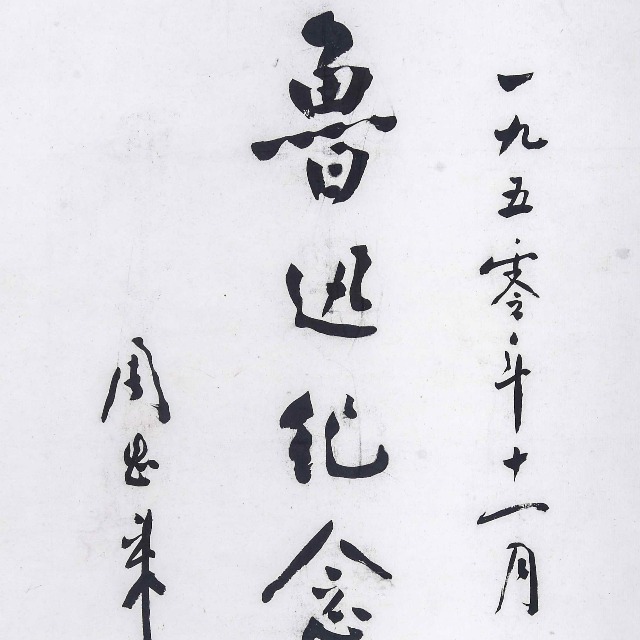 一九五零年十一月
鲁迅纪念
周恩来